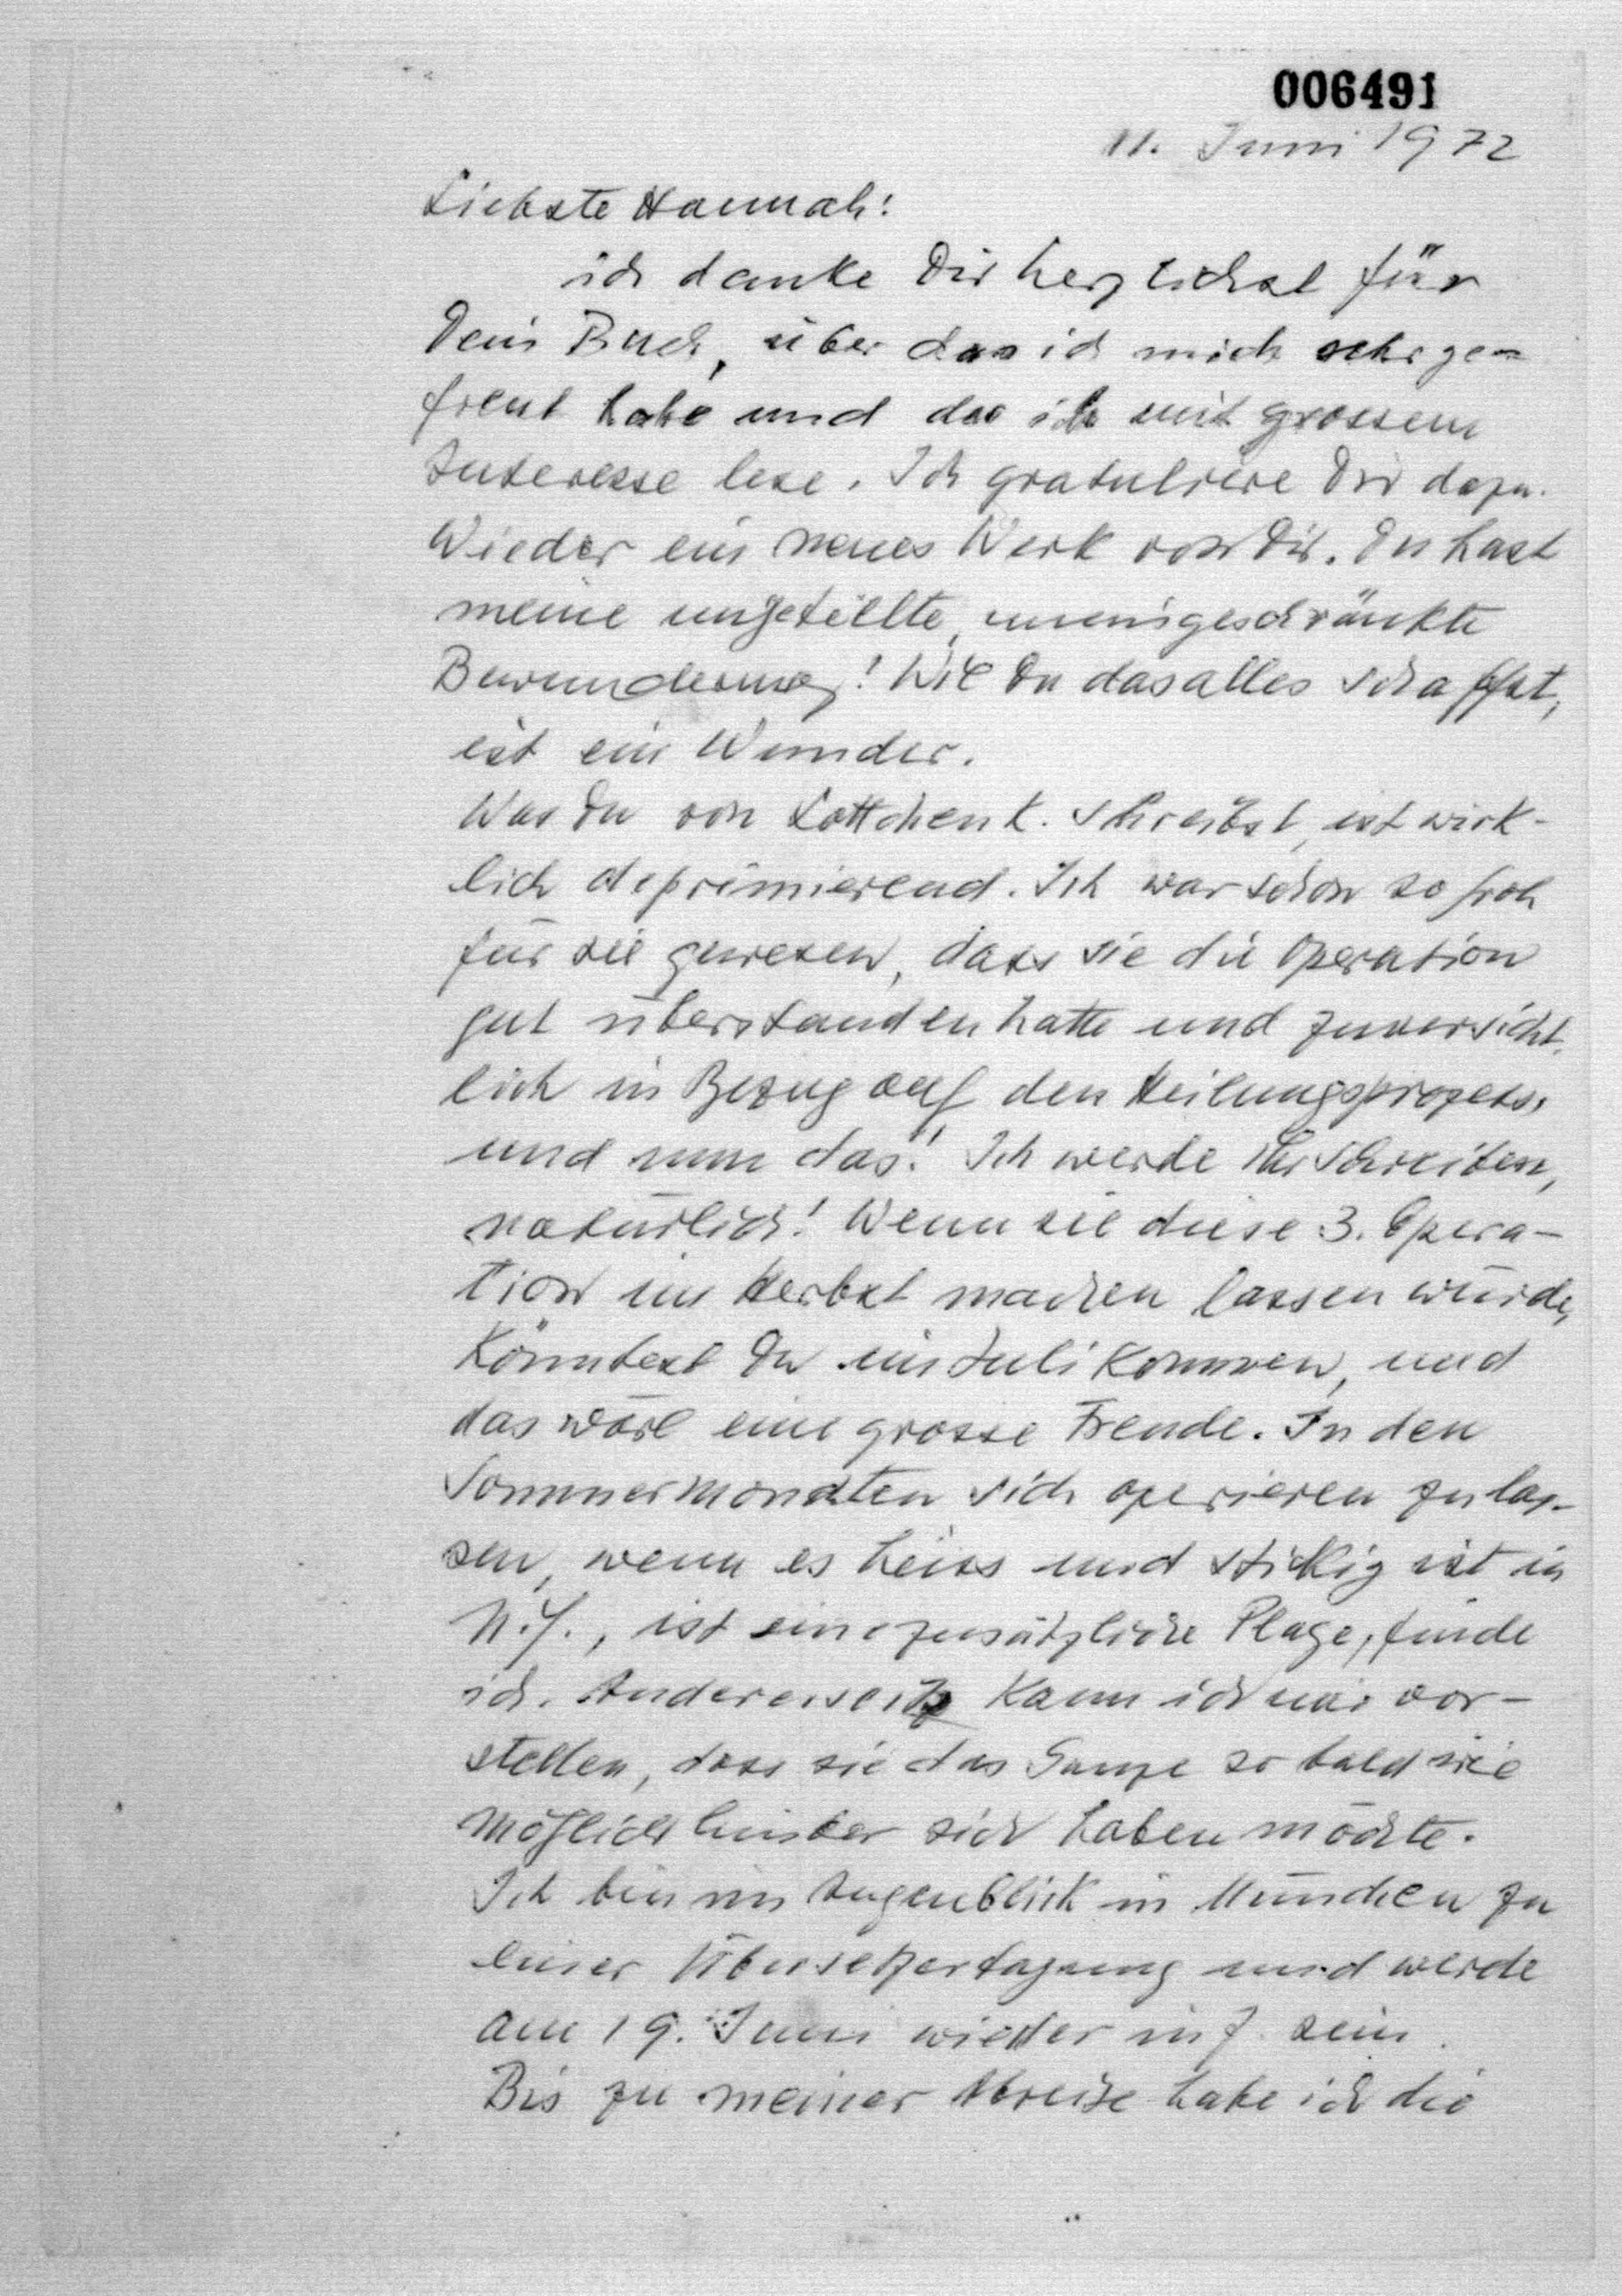 006491
11. Juni 1972
Liebste Hannah:
ich danke Dir herzlichst für
Dein Buch, über das ich mich sehr ge-
freut habe und das ich mit grossem
Interesse lese. Ich gratuliere Dir dazu.
Wieder ein neues Werk von Dir. Du hast
meine ungeteilte, uneingeschränkte
Bewunderung! Wie Du das alles schaffst,
ist ein Wunder.
Was Du von Lottchen K. schreibst, ist wirk-
lich deprimierend. Ich war schon so froh
für sie gewesen, dass sie die Operation
gut überstanden hatte und zuversicht-
lich in Bezug auf den Heilungsprozess,
und nun das! Ich werde ihr schreiben,
natürlich! Wenn sie diese 3. Opera-
tion im Herbst machen lassen würde,
könntest Du im Juli kommen, und
das wäre eine grosse Freude. In den
Sommermonaten sich operieren zu las-
sen, wenn es heiss und stickig ist in
N.Y., ist eine zusätzliche Plage, finde
ich. Andererseits kann ich mir vor-
stellen, dass sie das Ganze so bald wie
möglich hinter sich haben möchte.
Ich bin im Augenblick in München zu
einer Übersetzertagung und werde
am 19. Juni wieder in J. sein.
Bis zu meiner Abreise habe ich die